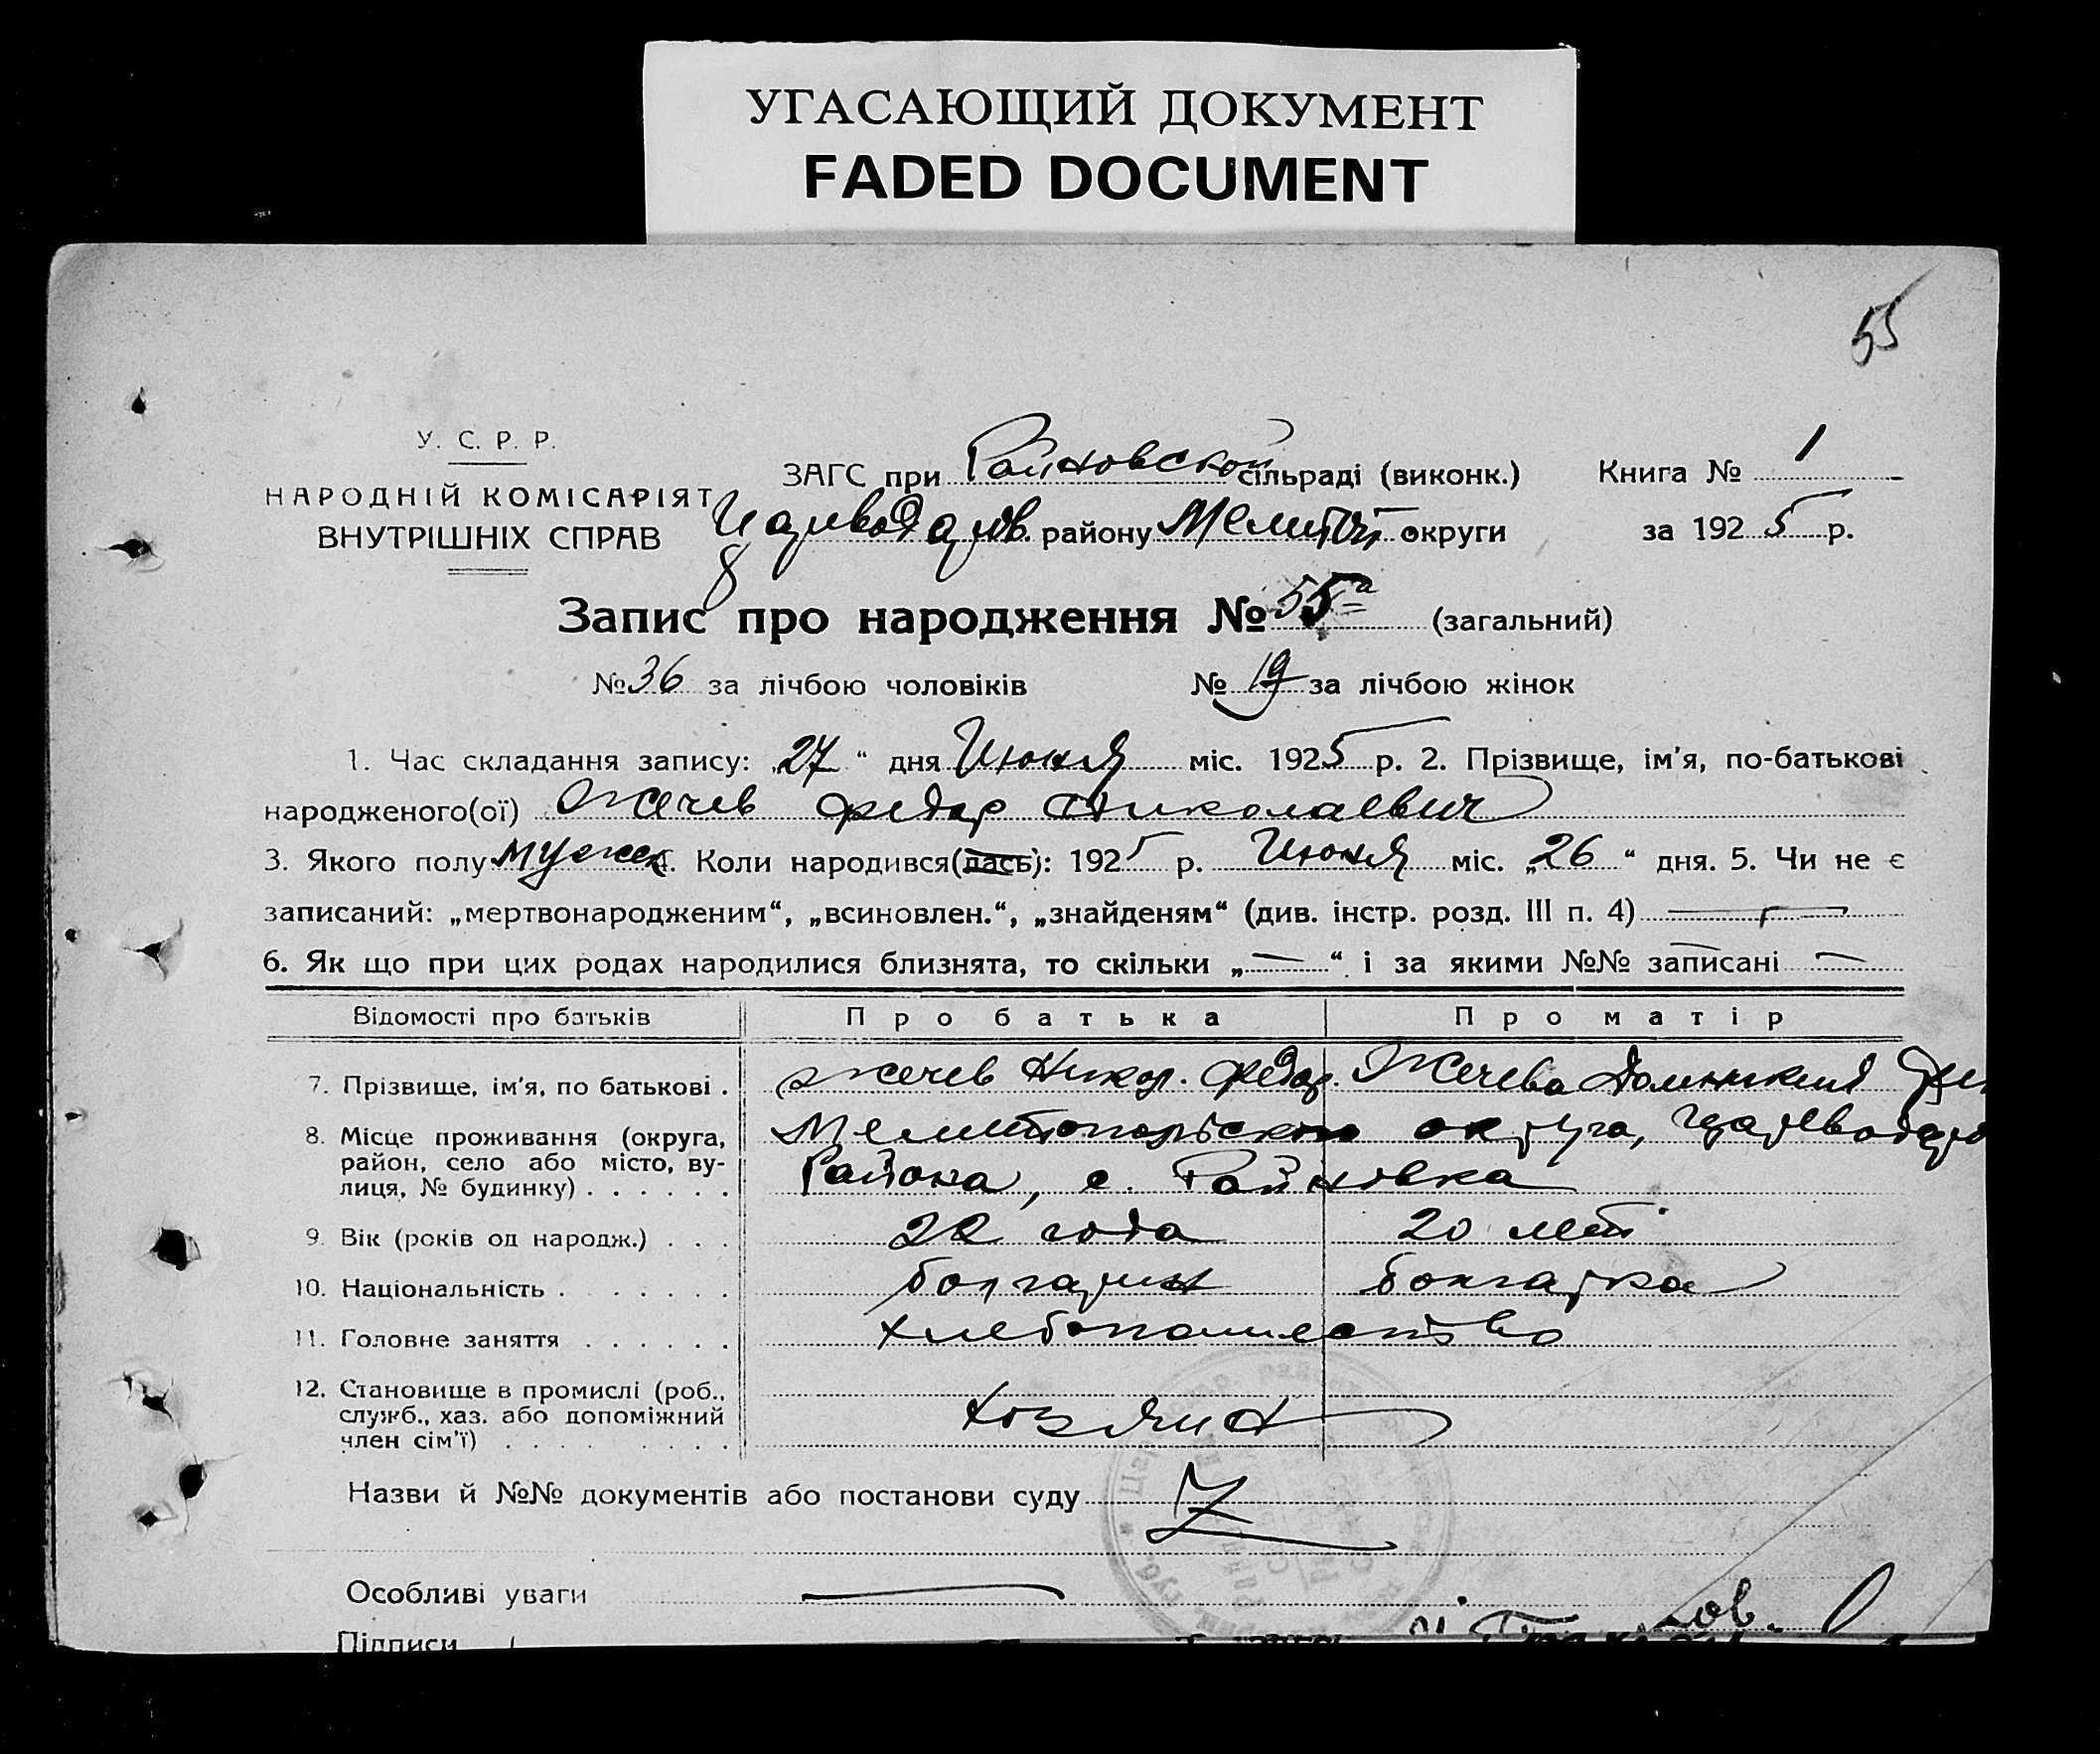 УГАСАЮЩИЙ ДОКУМЕНТ
FADED DOCUMENT
55
У. С. Р. Р.
НАРОДНІЙ КОМІСАРІЯТ
ВНУТРІШНІХ СПРАВ
ЗАГС при Райновской сільраді (виконк.) Книга № 1
Цареводаров. району Мелитоп округи за 1925 р.
Запис про народження № 55а (загальний)
№ 36 за лічбою чоловіків № 19 за лічбою жінок
1. Час складання запису: „27“ дня Июня міс. 1925 р. 2. Прізвище, ім'я, по-батькові
народженого(ої) Жечев Федор Николаевич
3. Якого полу мужск. Коли народився(лась): 1925 р. Июня міс. „26“ дня. 5. Чи не є
записаний: „мертвонародженим“, „всиновлен.“, „знайденям“ (див. інстр. розд. III п. 4) —
6. Як що при цих родах народилися близнята, то скільки „—“ і за якими №№ записані —
Відомості про батьків Про батька Про матір
7. Прізвище, ім'я, по батькові . Жечев Никол. Федор. Жечева
8. Місце проживання (округа, район, село або місто, вулиця, № будинку) . . . . . . Мелитопольского округа,
Района, с. Райновка
9. Вік (років од народж.) . . . 22 года 20 лет
10. Національність . . . . . . . болгарин болгарка
11. Головне заняття . . . . . . хлебопашество
12. Становище в промислі (роб., служб., хаз. або допоміжний член сім'ї) . . . . . . . . . хозяин
Назви й №№ документів або постанови суду
Особливі уваги —
Підписи